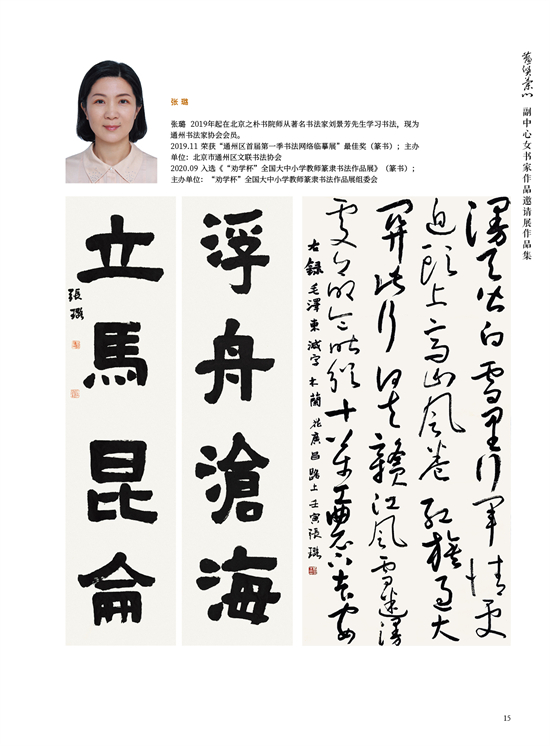 副中心女书家作品邀请展作品集
张 璐
张璐 2019年起在北京之朴书院师从著名书法家刘景芳先生学习书法,现为
通州书法家协会会员。
2019.11 荣获“通州区首届第一季书法网络临摹展”最佳奖(篆书);主办
单位:北京市通州区文联书法协会
2020.09 入选《“劝学杯”全国大中小学教师篆隶书法作品展》(篆书);
主办单位:“劝学杯”全国大中小学教师篆隶书法作品展组委会
漫天皆白雪里行军情更
迫頭上高山风卷红旗过大
関此行何去赣江风雪迷漫
处命令昨颁十万工農下吉安
右録毛澤東减字木蘭花廣昌路上壬寅張璐
浮舟滄海
立馬昆侖
張璐
15